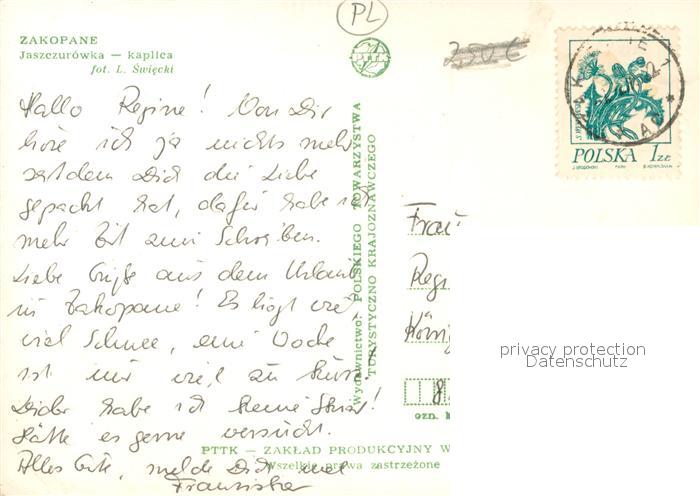 PL
ZAKOPANE
Jaszczurówka — kaplica
fot. L. Święcki
PTTK
250 €
POLSKA 1 ZŁ
Hallo Regine! Von Dir
höre ich ja nichts mehr
seitdem Dich die Liebe
gepackt hat, dafür habe ich
mehr Zeit zum Schreiben.
Liebe Grüße aus dem Urlaub
in Zakopane! Es liegt
viel Schnee, eine Woche
ist mir viel zu kurz.
Leider habe ich keine Skier!
Hätte es gerne versucht.
Alles Gute, melde Dich mal
Franziska
Wydawnictwo: POLSKIEGO TOWARZYSTWA
TURYSTYCZNO KRAJOZNAWCZEGO
Frau
Regi
König
8
ozn. k
privacy protection
Datenschutz
PTTK — ZAKŁAD PRODUKCYJNY W
Wszelkie prawa zastrzeżone